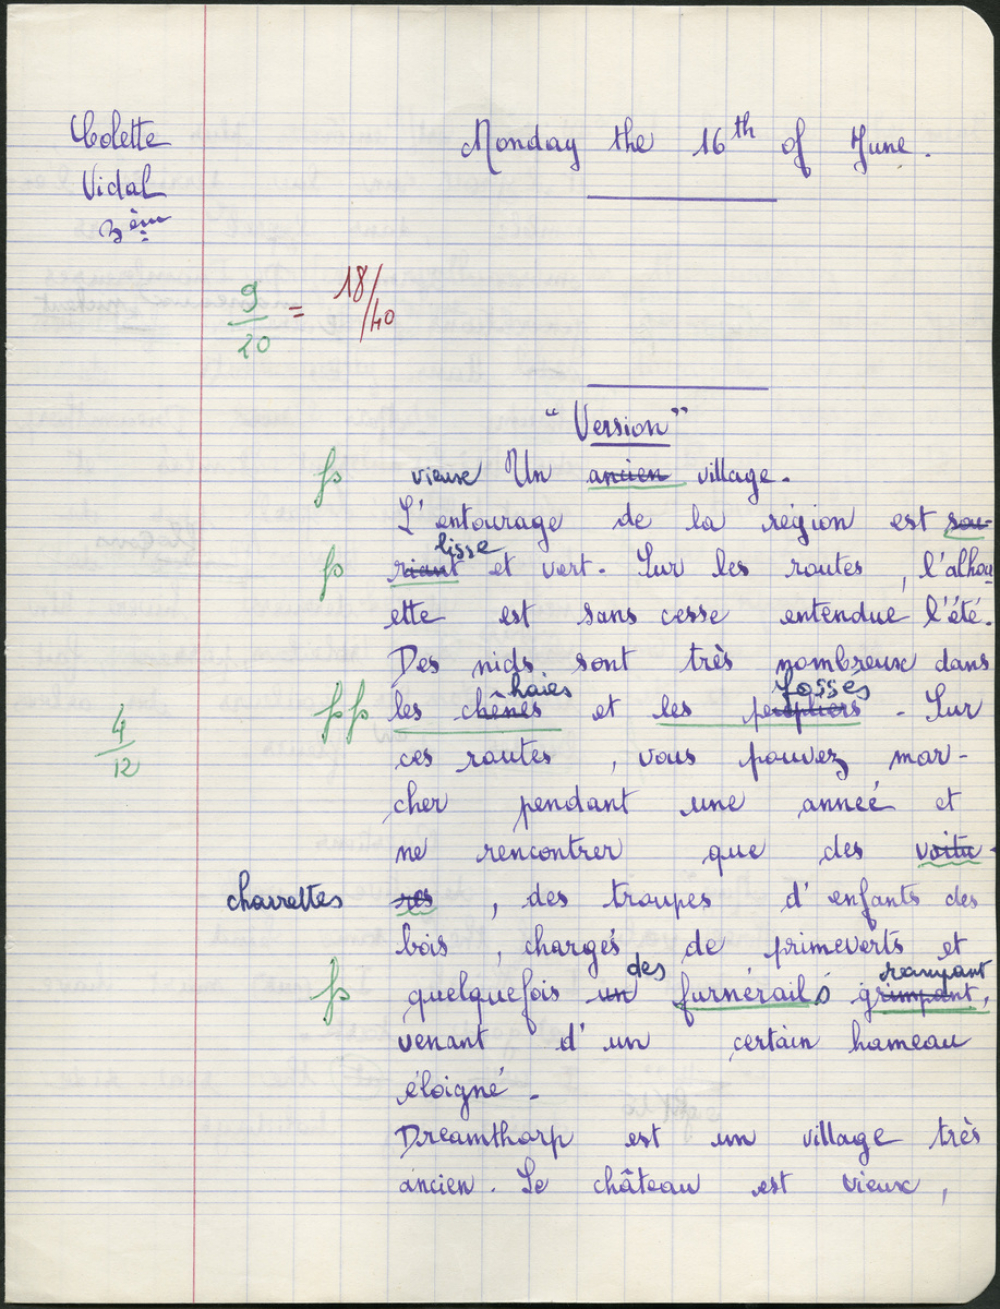 Colette
Vidal
3ème
Monday the 16th of June.
9/20 = 18/40
"Version"
fs vieux Un ancien village.
L'entourage de la région est sou-
lisse
fs riant et vert. Sur les routes, l'alhou
ette est sans cesse entendue l'été.
Des nids sont très nombreux dans
haies fossés
4/12 fs fs les chênes et les peupliers. Sur
ces routes, vous pouvez mar-
cher pendant une anneé et
ne rencontrer que des voitu-
charrettes res, des troupes d'enfants des
bois, chargés de primeverts et
des rampant
fs quelquefois un furnérails grimpant,
venant d'un certain hameau
éloigné.
Dreamthorp est un village très
ancien. Le château est vieux,